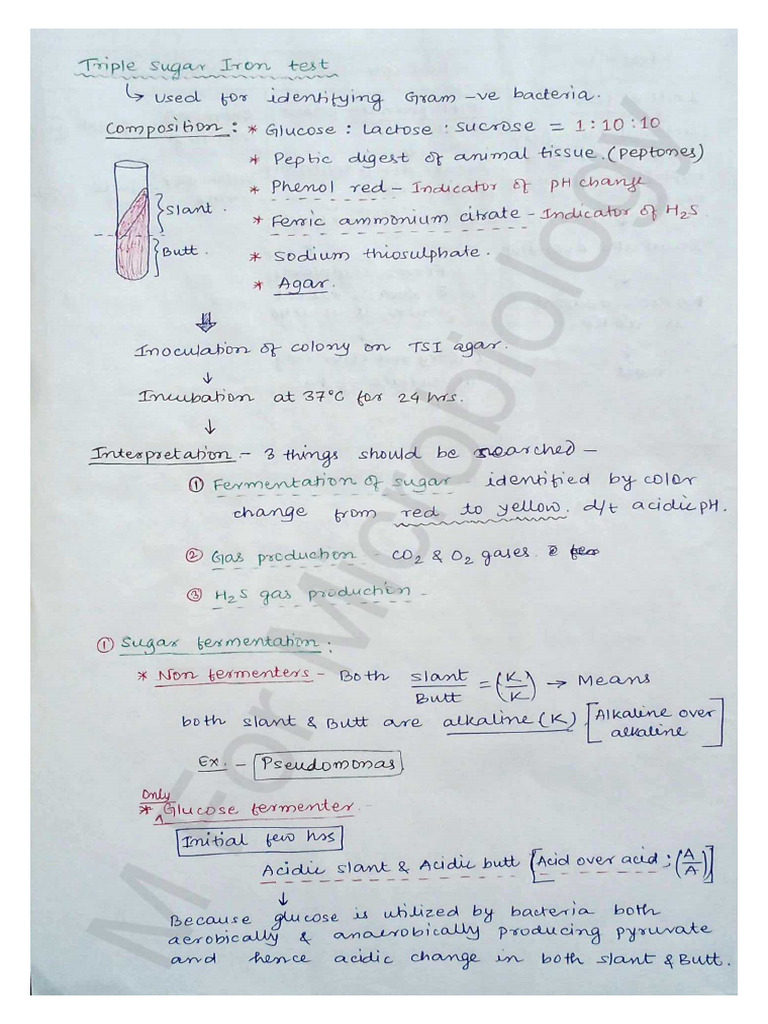 Triple sugar Iron test
↳ used for identifying Gram -ve bacteria.
Composition : * Glucose : Lactose : sucrose = 1 : 10 : 10
* Peptic digest of animal tissue. (Peptones)
* Phenol red - Indicator of pH change
* Ferric ammonium citrate - Indicator of H2S
* Sodium thiosulphate.
* Agar.
Slant.
Butt.
⇓
Inoculation of colony on TSI agar.
↓
Incubation at 37°C for 24 hrs.
↓
Interpretation - 3 things should be searched -
① Fermentation of sugar - identified by color
change from red to yellow. d/t acidic pH.
② Gas production - CO2 & O2 gases.
③ H2S gas production -
① Sugar fermentation :
* Non fermenters - Both Slant/Butt = (K/K) → Means
both slant & Butt are alkaline (K) [Alkaline over alkaline]
Ex. - Pseudomonas
Only
* ^ Glucose fermenter -
Initial few hrs
Acidic slant & Acidic butt [Acid over acid ; (A/A)]
↓
Because glucose is utilized by bacteria both
aerobically & anaerobically producing pyruvate
and hence acidic change in both slant & Butt.
M For Microbiology